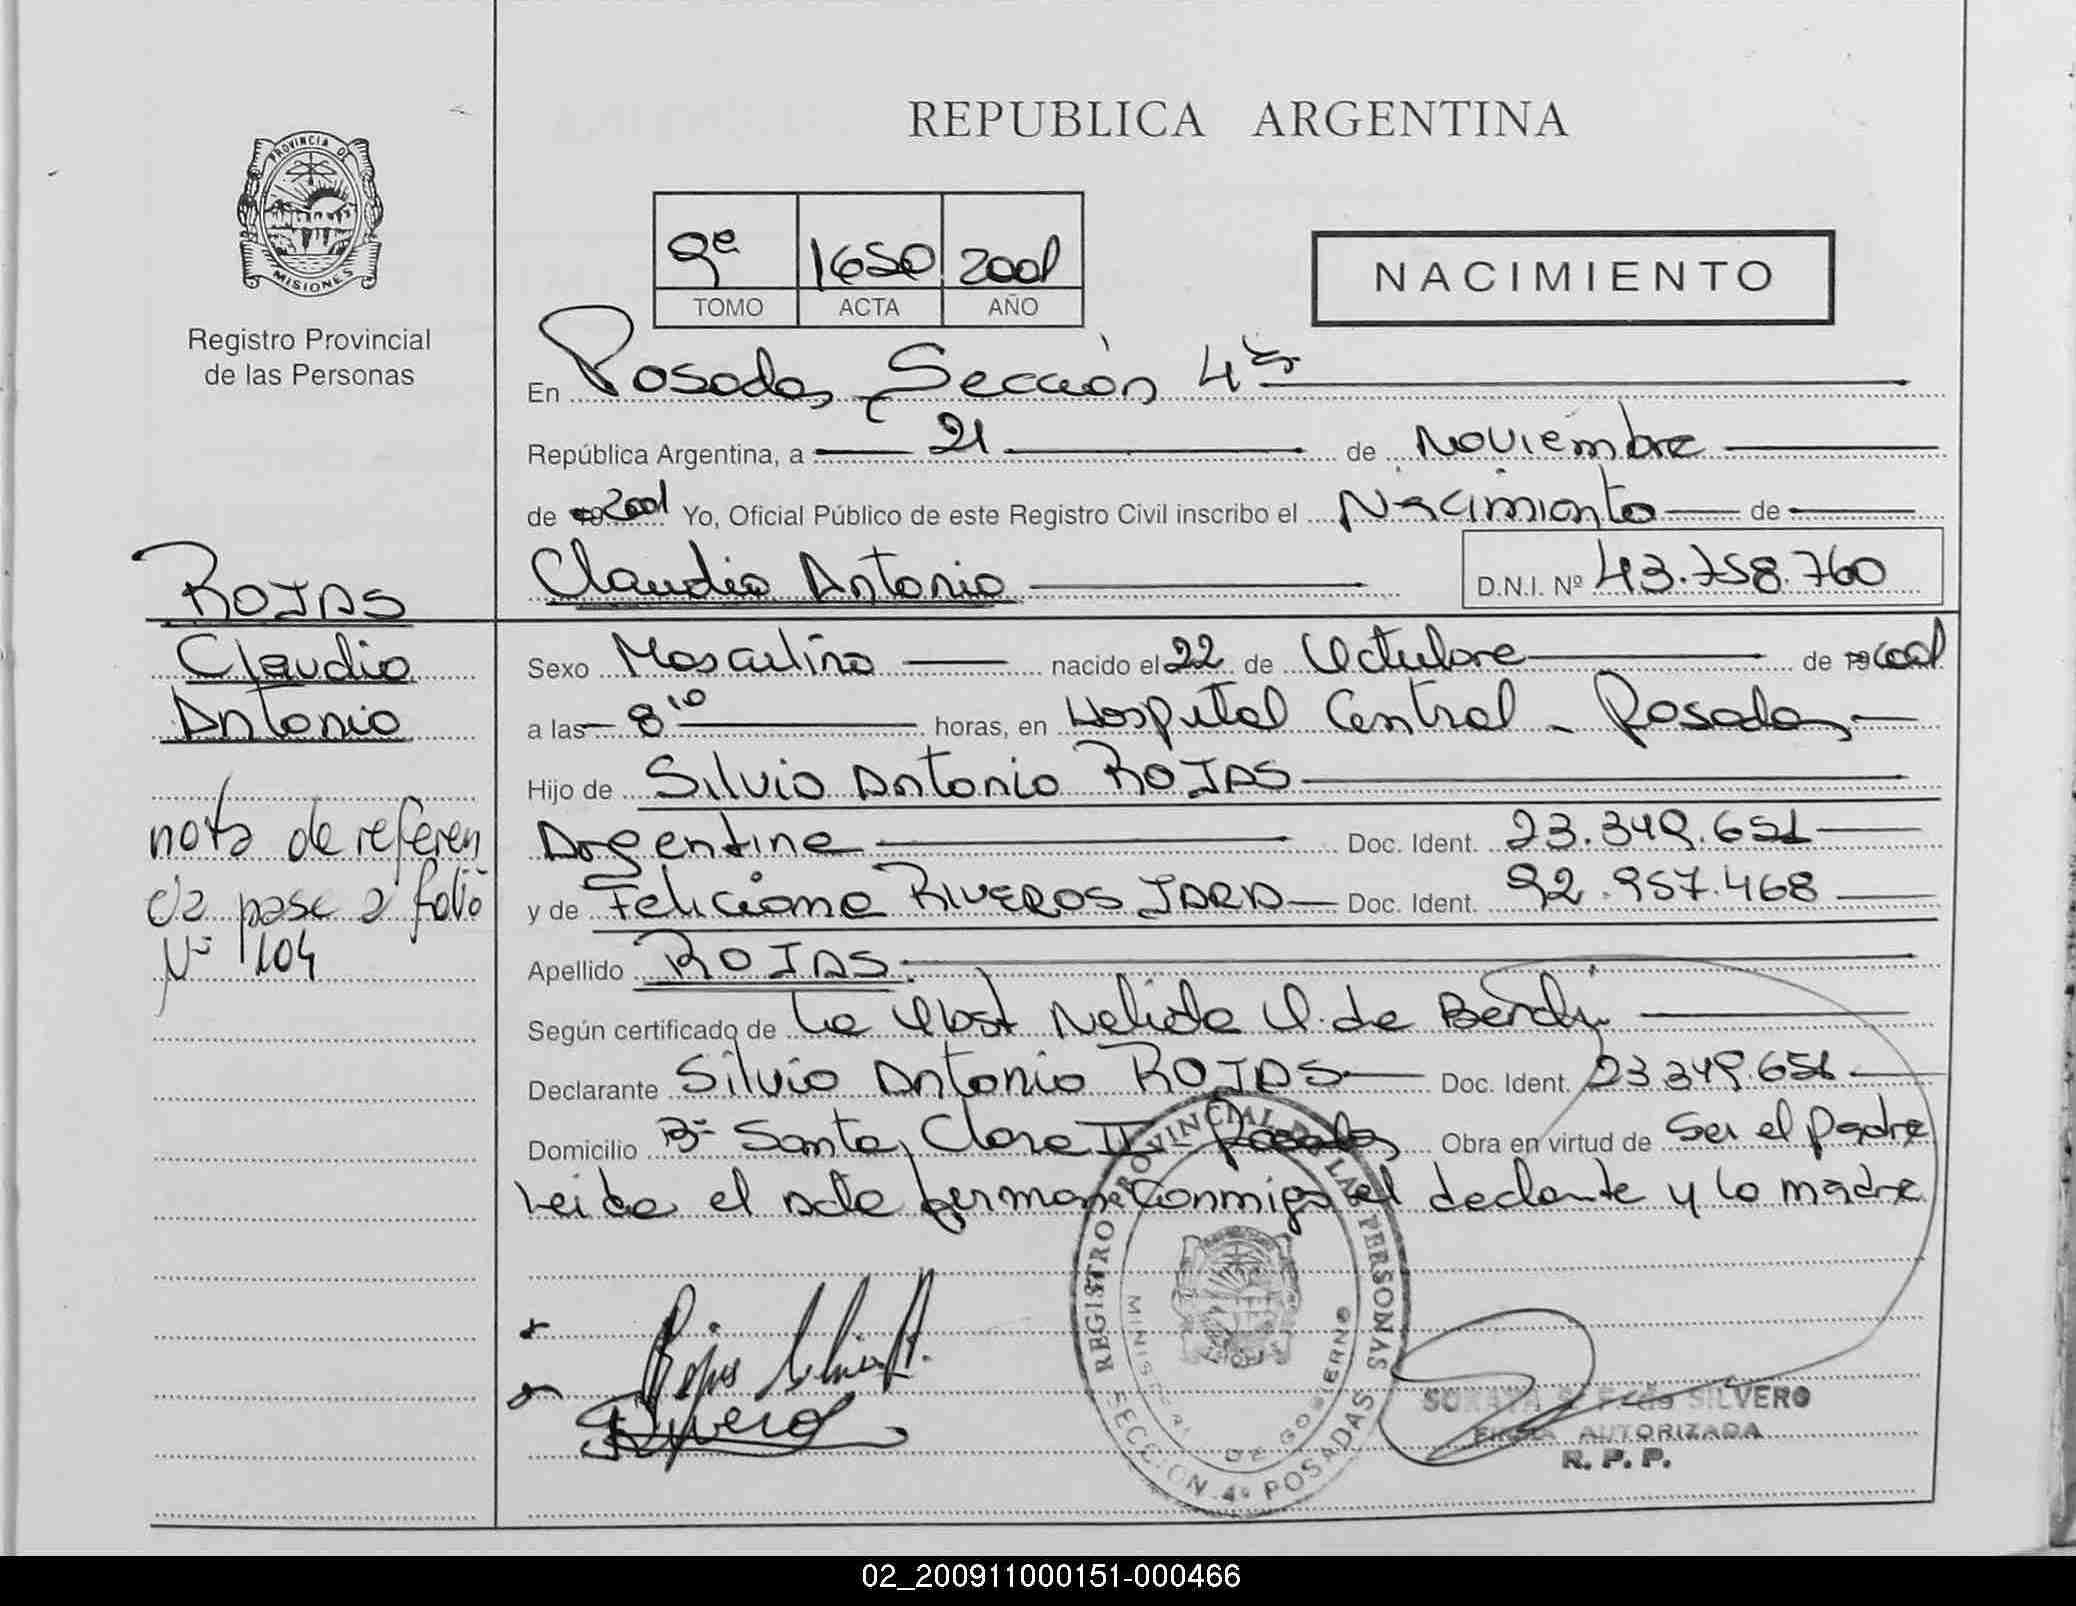 REPUBLICA ARGENTINA
PROVINCIA DE
MISIONES
Registro Provincial
de las Personas
9e 1650 2001
TOMO ACTA AÑO
NACIMIENTO
En Posadas, Sección 4ta
República Argentina, a 21 de Noviembre
de 2001 Yo, Oficial Público de este Registro Civil inscribo el Nacimiento de
Claudio Antonio D.N.I. Nº 43.758.760
ROJAS
Claudio
Antonio
nota de referen
cia pase a folio
Nº 104
Sexo Masculino nacido el 22 de Octubre de 2001
a las 8 10 horas, en Hospital Central - Posadas
Hijo de Silvio Antonio ROJAS
Argentina Doc. Ident. 23.349.651
y de Feliciana RIVEROS JARA Doc. Ident. 92.957.468
Apellido ROJAS
Según certificado de La Obst Nelida O. de
Declarante Silvio Antonio ROJAS Doc. Ident. 23.349.651
Domicilio Bº Santa Clara II Posadas Obra en virtud de Ser el padre
Leida el acta firman conmigo el declante y la madre
Rojas Silvio A.
Riveros
REGISTRO PROVINCIAL DE LAS PERSONAS
MINIST. DE GOBIERNO
SECCION 4º POSADAS
SILVERO
FIRMA AUTORIZADA
R. P. P.
02_200911000151-000466